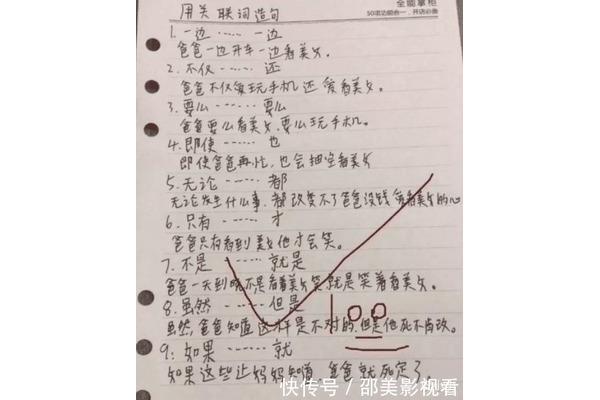 全能掌柜
50项功能合一，开店必备
用关联词造句
1.一边……一边
爸爸一边开车一边看美女。
2.不仅……还
爸爸不仅每玩手机还爱看美女。
3.要么……要么
爸爸要么看美女,要么玩手机。
4.即使……也
即使爸爸再忙,也会抽空看美女
5.无论……都
无论发生什么事,都改变不了爸爸没钱爱看美女的心
6.只有……才
爸爸只有看到美女他才会笑。
7.不是……就是
爸爸一天到晚不是看着美女笑就是笑着看美女。
8.虽然……但是
虽然,爸爸知道这样是不对的,但是他死不肯改。
9:如果……就
如果这些让妈妈知道,爸爸就死定了。
100
快传号/邵美影视看